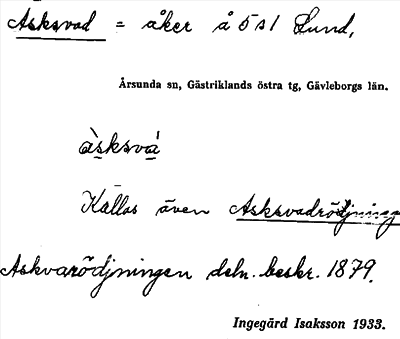 Asksvad = åker å 5 s1 Lund,
Årsunda sn, Gästriklands östra tg, Gävleborgs län.
àsksvá
Kallas även Asksvadrödjning
Askvarödjningen deln. beskr. 1879.
Ingegärd Isaksson 1933.